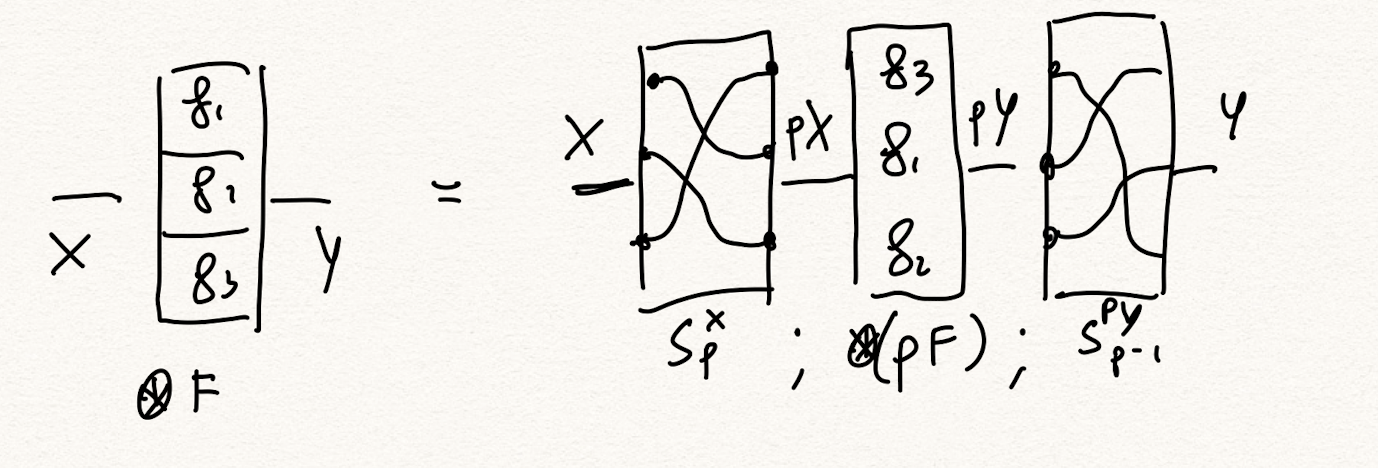 X f₁ f₂ f₃ Y = X pX f₃ f₁ f₂ pY Y
⊗ F
S_p^X ; ⊗(pF) ; S_{p-1}^{pY}